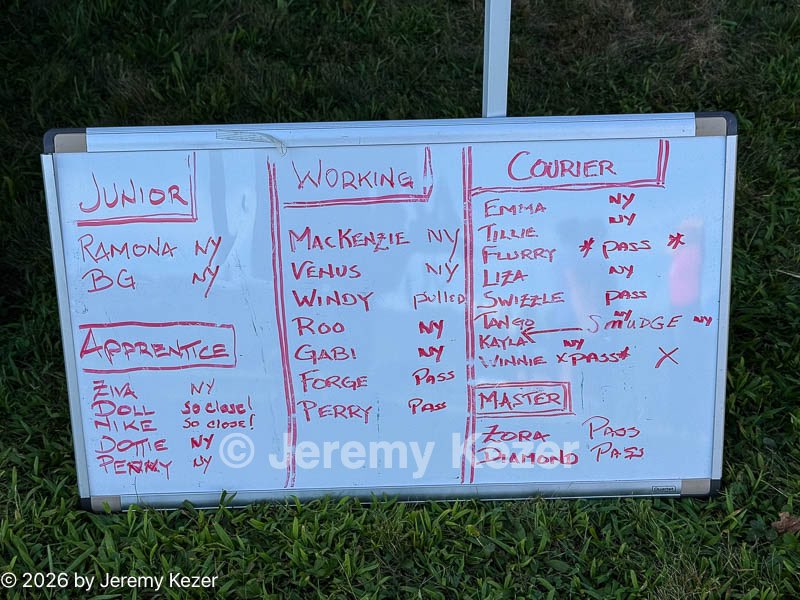 JUNIOR
RAMONA NY
BG NY
APPRENTICE
ZIVA NY
DOLL So close!
NIKE So close!
DOTTIE NY
PENNY NY
WORKING
MACKENZIE NY
VENUS NY
WINDY pulled
ROO NY
GABI NY
FORGE PASS
PERRY PASS
COURIER
EMMA NY
TILLIE NY
FLURRY * PASS *
LIZA NY
SWIZZLE PASS
TANGO NY
SMUDGE NY
KAYLA NY
WINNIE *PASS* X
MASTER
ZORA PASS
DIAMOND PASS
© Jeremy Kezer
© 2026 by Jeremy Kezer